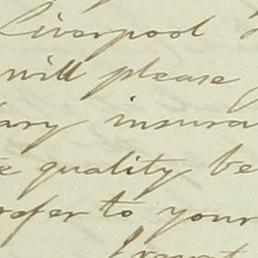 Liverpool
will please
insura
quality be
refer to your